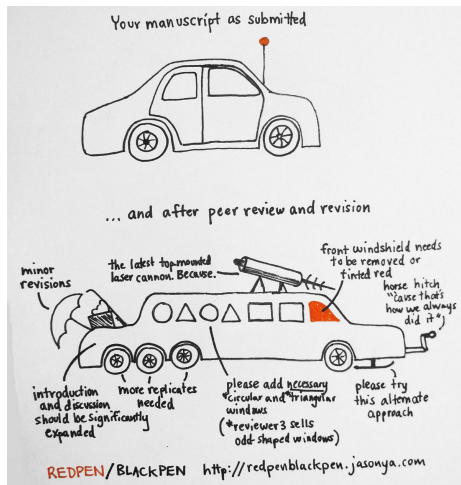 Your manuscript as submitted
... and after peer review and revision
minor
revisions
the latest top mounted
laser cannon. Because.
front windshield needs
to be removed or
tinted red
horse hitch
"'cause that's
how we always
did it")
introduction
and discussion
should be significantly
expanded"
more replicates
needed
please add necessary
*circular and *triangular
windows
(*reviewer 3 sells
odd-shaped windows)
please try
this alternate
approach
REDPEN/BLACKPEN http://redpenblackpen.jasonya.com